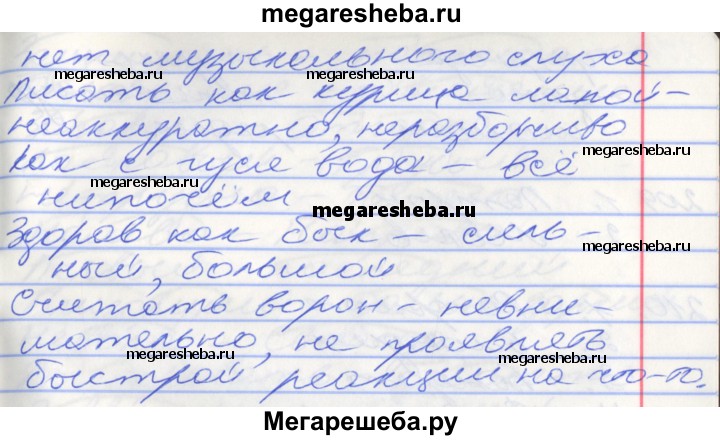 megaresheba.ru
нет музыкального слуха
megaresheba.ru megaresheba.ru
Писать как курица лапой –
неаккуратно, неразборчиво
megaresheba.ru
Как с гуся вода – всё
megaresheba.ru
нипочём
megaresheba.ru
Здоров как бык – силь-
ный, большой
Считать ворон – невни-
мательно, не проявлять
megaresheba.ru megaresheba.ru
быстрой реакции на что-то.
Мегарешеба.ру